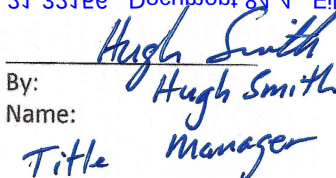 Hugh Smith
By: Hugh Smith
Name:
Title Manager